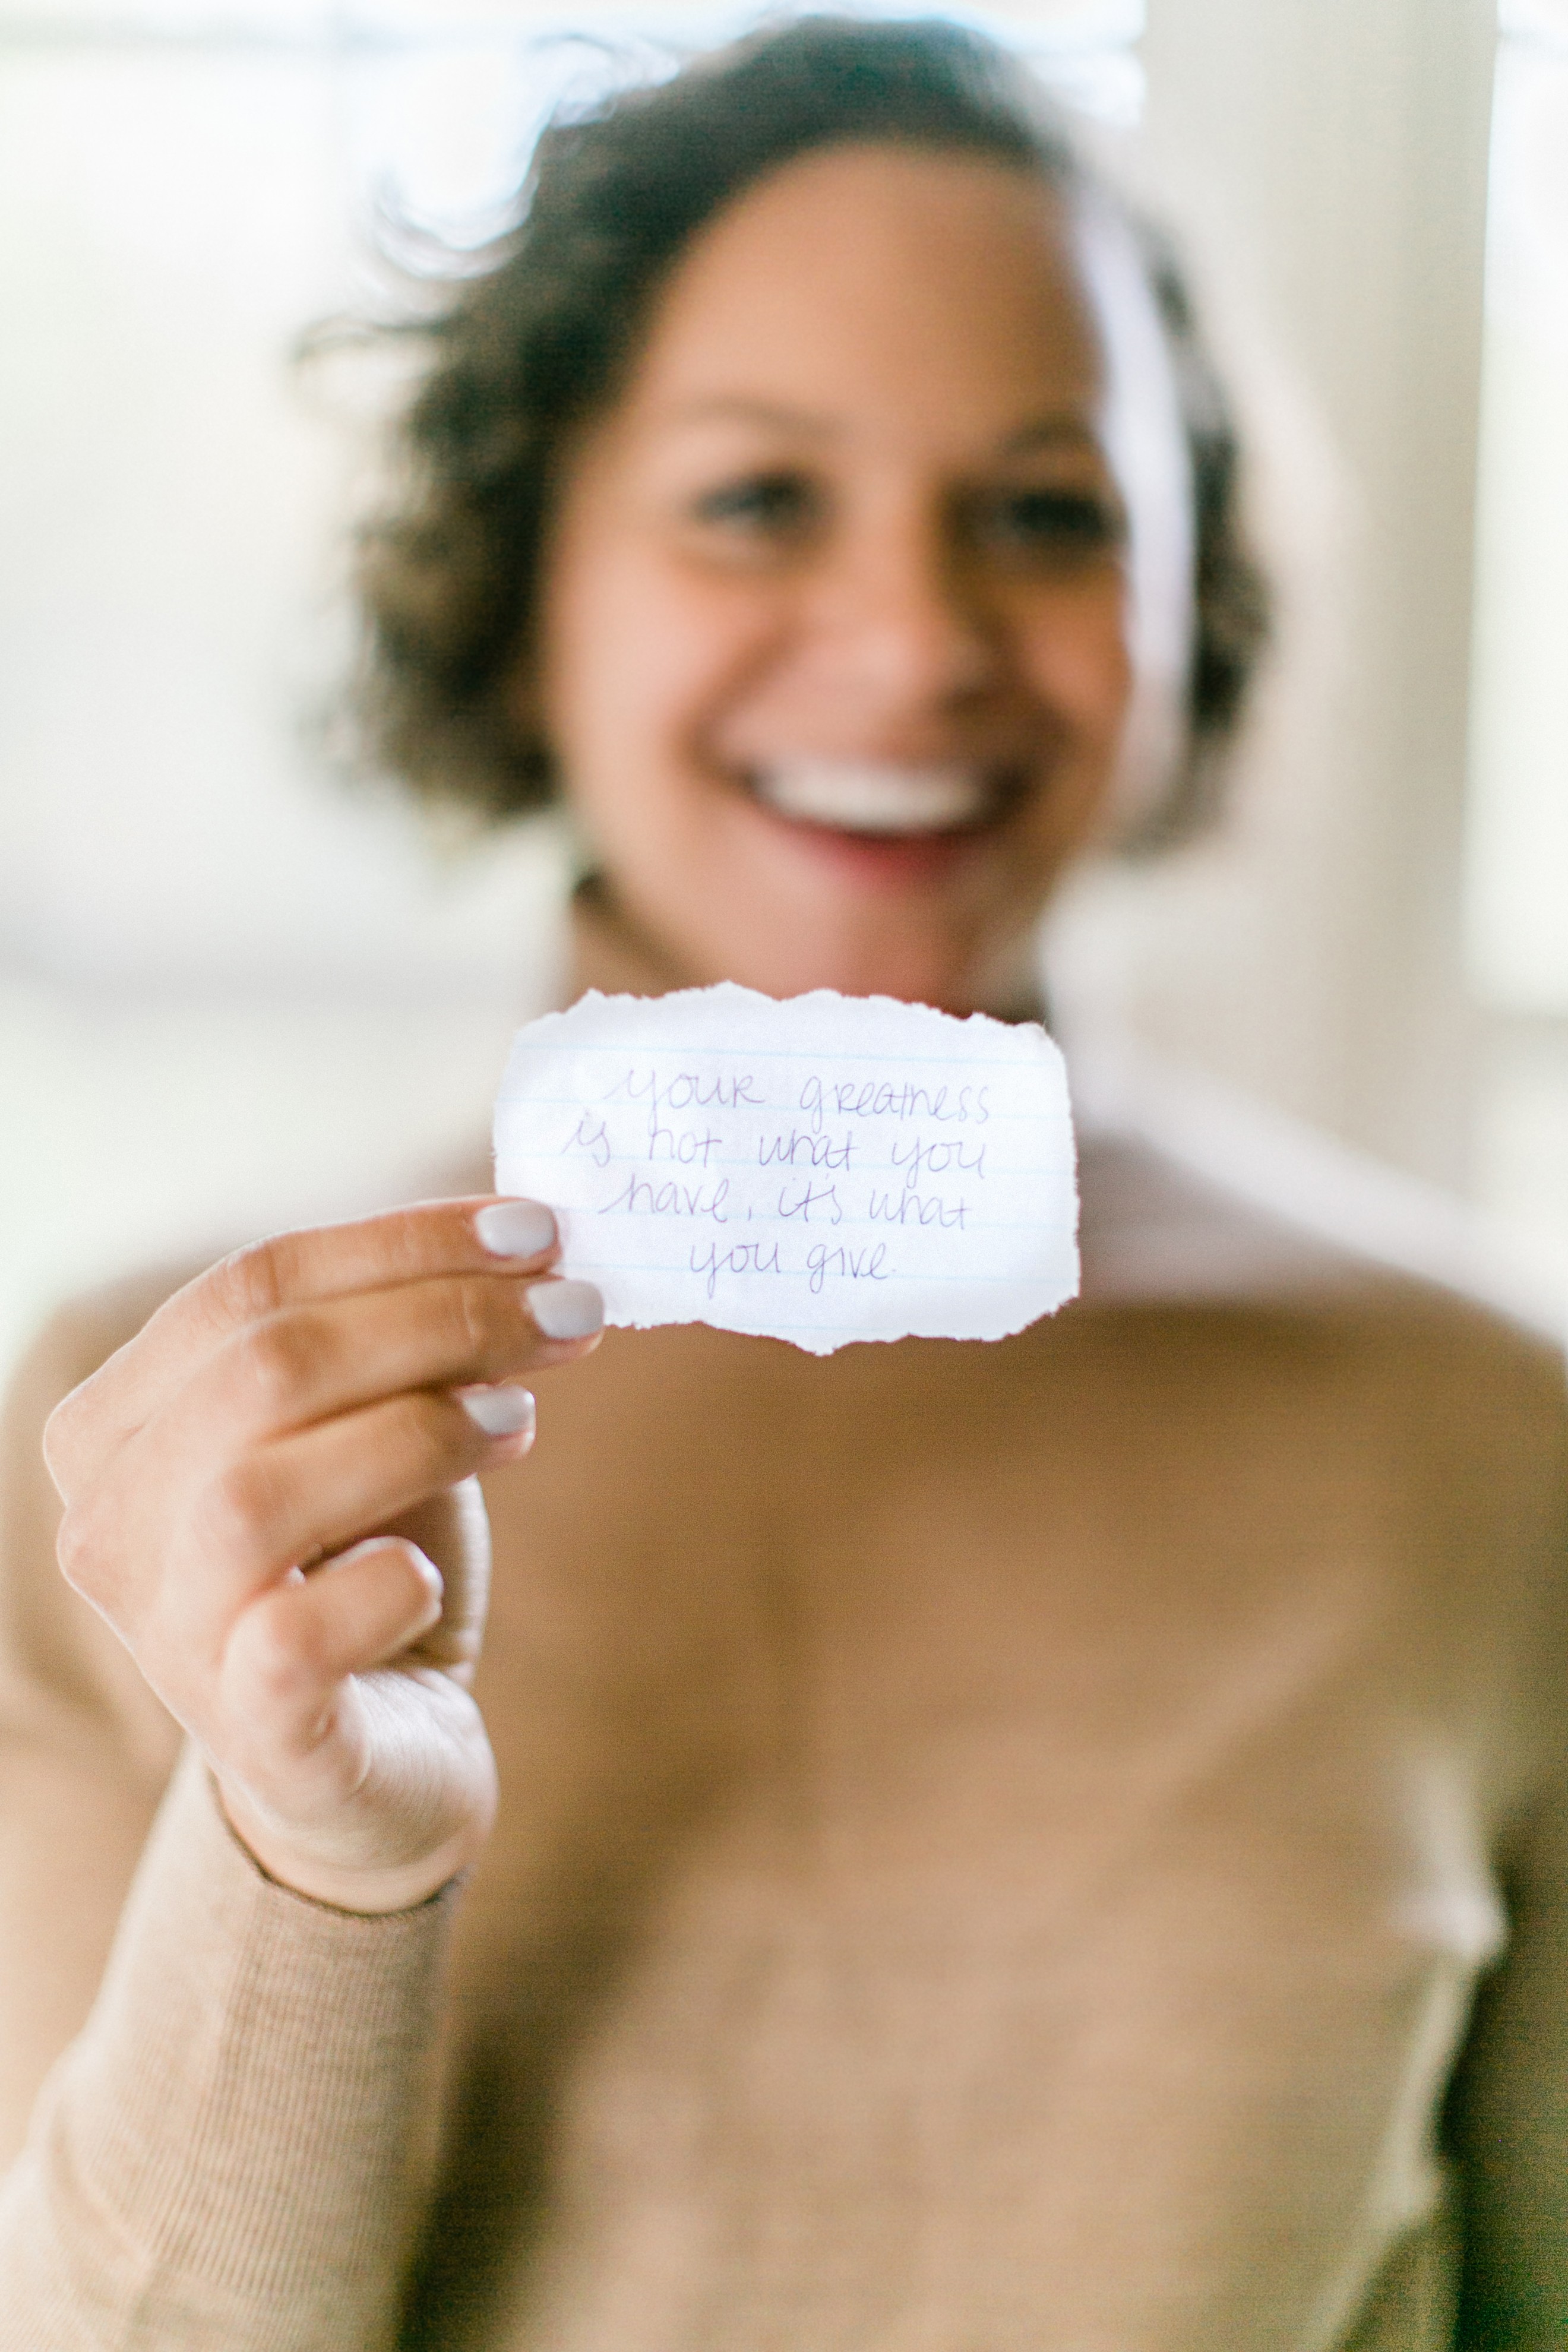 your greatness
is not what you
have, it's what
you give.